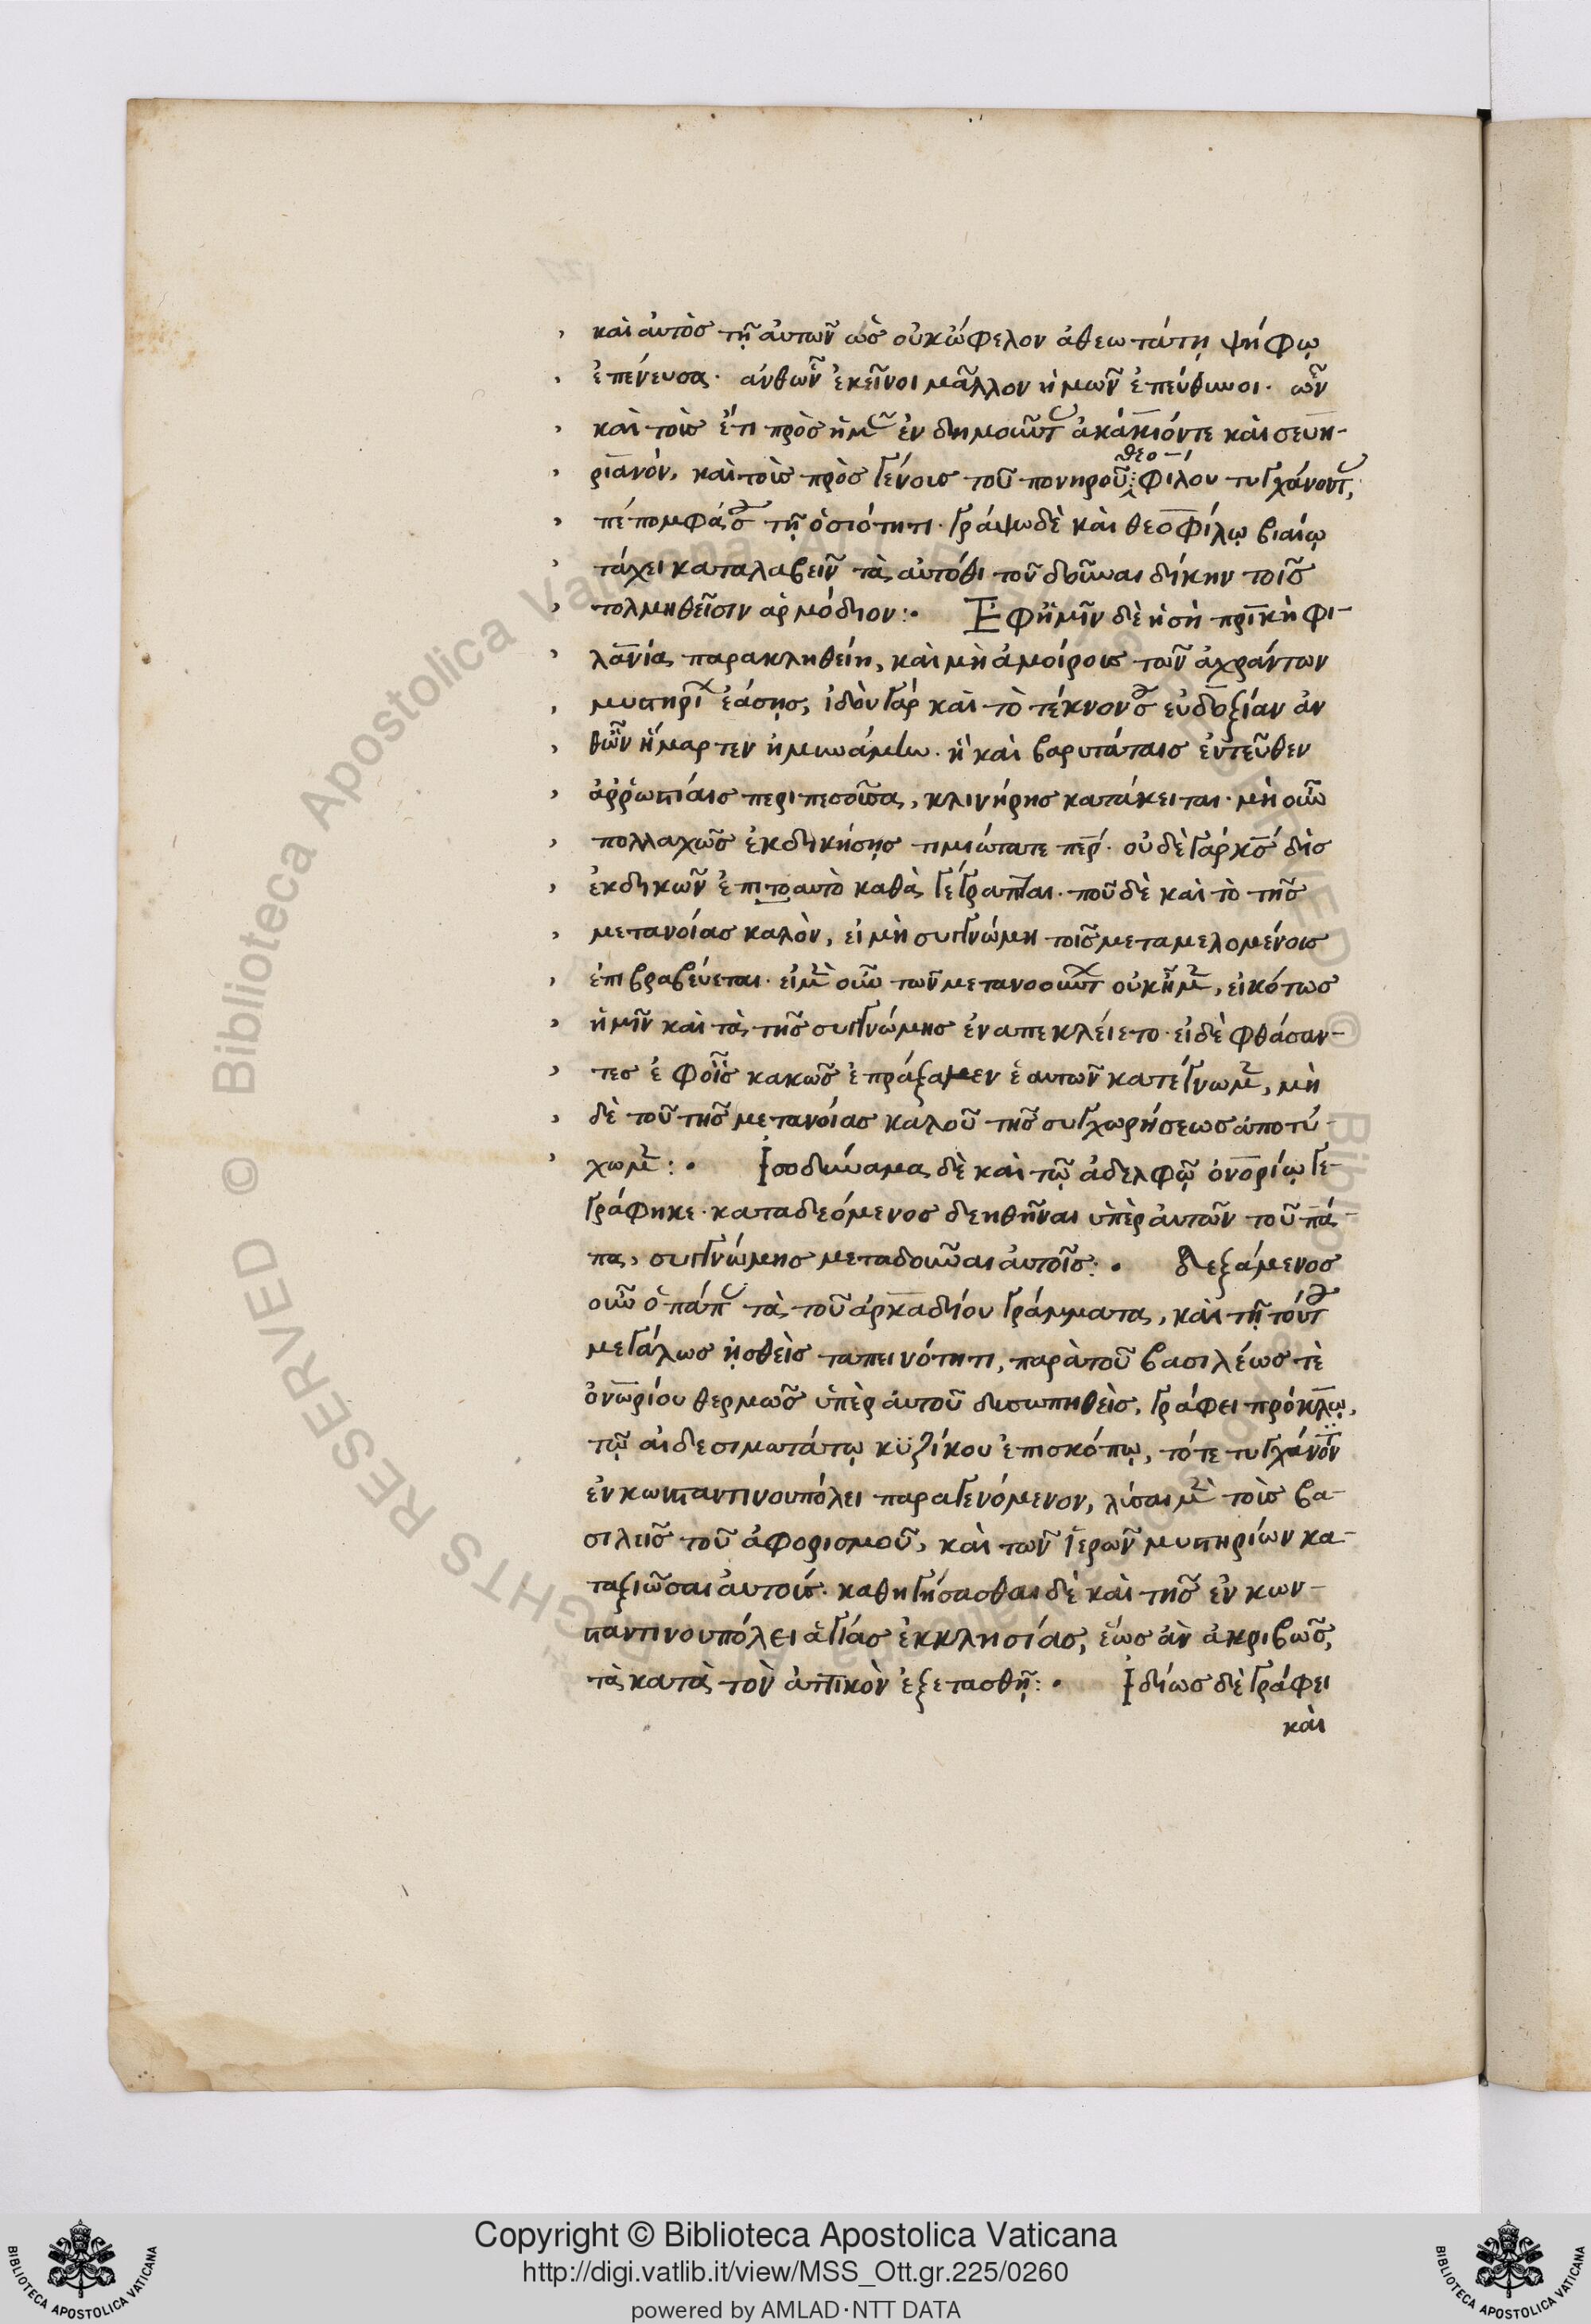 καὶ αὐτὸς τῇ αὐτῶν ὡς οὐκ ὤφελον ἀθεωτάτη ψήφῳ
ἐπένευσα. ἀνθ ὧν ἐκεῖνοι μᾶλλον ἡμῶν ἐπεύθυνοι. ὧν
καὶ τοὺς ἔτι πρὸς ἡμᾶς ἐνδημοῦντας ἀκάκιόν τε καὶ σευη-
ριανόν, καὶ τοὺς πρὸς γένους τοῦ πονηροῦ θεοφίλου τυγχάνοντας,
πέπομφά σου τῇ ὁσιότητι. γράψω δὲ καὶ θεοφίλῳ βιαίῳ
τάχει καταλαβεῖν τὰ αὐτόθι τοῦ δοῦναι δίκην τοῖς
τολμηθεῖσιν ἁρμόδιον:. Ἐφ ἡμῖν δὲ ἡ σὴ πρικὴ φι-
λανία παρακληθείη, καὶ μὴ ἀμοίρους τῶν ἀχράντων
μυστηρίων ἐάσῃς, ἰδοὺ γὰρ καὶ τὸ τέκνον σου εὐδοξίαν ἀν
θ ὧν ἥμαρτεν ἠμυνάμην. ἢ καὶ βαρυτάταις ἐντεῦθεν
ἀῤῥωστίαις περιπεσοῦσα, κλινήρης κατάκειται. μὴ οὖν
πολλαχῶς ἐκδικήσῃς τιμιώτατε περ. οὐδὲ γὰρ κς δὶς
ἐκδικῶν ἐπιτοαυτὸ καθὰ γέγραπται. ποῦ δὲ καὶ τὸ τῆς
μετανοίας καλὸν, εἰ μὴ συγγνώμη τοῖς μεταμελομένοις
ἐπιβραβεύεται. εἰ μὲν οὖν τῶν μετανοούντων οὐκ ἦμεν, εἰκότως
ἡμῖν καὶ τὰ τῆς συγγνώμης ἐναπεκλείετο. εἰ δὲ φθάσαν-
τες ἐφ οἷς κακῶς ἐπράξαμεν ἑαυτῶν κατέγνωμεν, μὴ
δὲ τοῦ τῆς μετανοίας καλοῦ τῆς συγχωρήσεως ἀποτύ-
χωμεν:. Ἰσοδύναμα δὲ καὶ τῷ ἀδελφῷ ὀνορίῳ γε-
γράφηκε. καταδεόμενος δεηθῆναι ὑπὲρ αὐτῶν τοῦ πά-
πα, συγγνώμης μεταδοῦναι αὐτοῖς:. Δεξάμενος
οὖν ὁ πάπας τὰ τοῦ ἀρκαδίου γράμματα, καὶ τῇ τούτου
μεγάλως ἡσθεὶς ταπεινότητι, παρὰ τοῦ βασιλέως τὲ
ὀνωρίου θερμῶς ὑπὲρ αὐτοῦ δυσωπηθεὶς, γράφει πρόκλῳ,
τῷ αἰδεσιμωτάτῳ κϋζίκου ἐπισκόπῳ, τότε τυγχάνοντι
ἐν κωνσταντινουπόλει παραγενόμενον, λύσαι μὲν τοὺς βα-
σιλεῖς τοῦ ἀφορισμοῦ, καὶ τῶν ἱερῶν μυστηρίων κα-
ταξιῶσαι αὐτούς. καθηγήσασθαι δὲ καὶ τῆς ἐν κων-
σταντινουπόλει ἁγίας ἐκκλησίας, ἕως ἂν ἀκριβῶς,
τὰ κατὰ τὸν ἀττικὸν ἐξετασθῇ:. Ἰδίως δὲ γράφει
καὶ
Copyright © Biblioteca Apostolica Vaticana
http://digi.vatlib.it/view/MSS_Ott.gr.225/0260
powered by AMLAD·NTT DATA